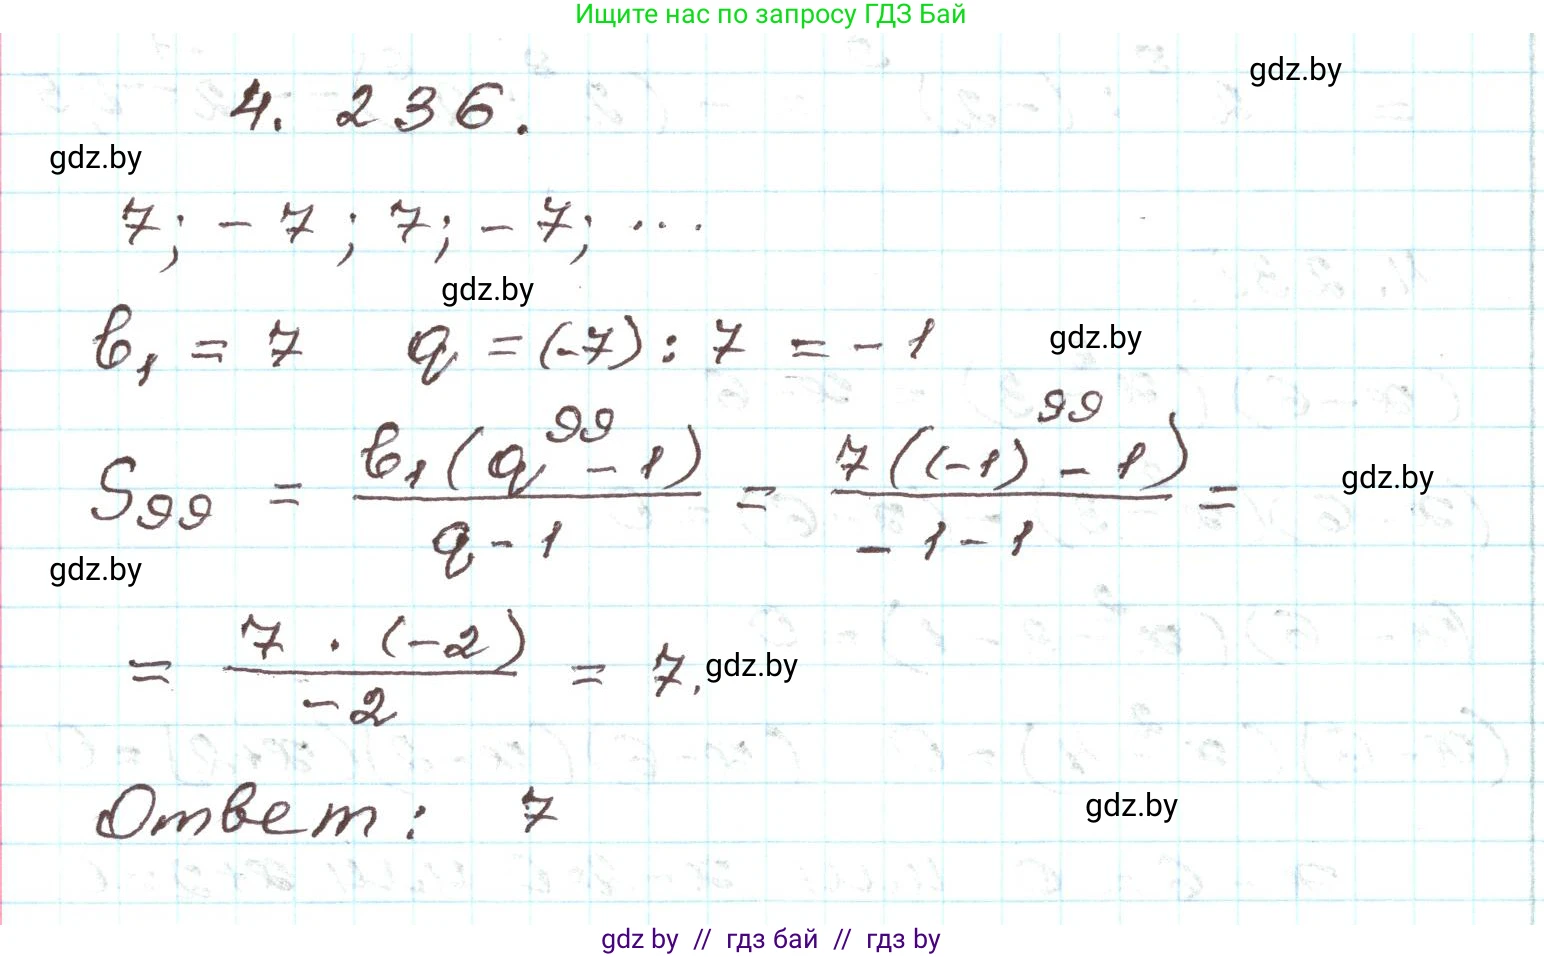 Ищите нас по запросу ГДЗ Бай
gdz.by
4. 236.
gdz.by
7; - 7; 7; - 7; ...
gdz.by
b₁ = 7 q = (-7) : 7 = - 1
gdz.by
S₉₉ = b₁(q⁹⁹ - 1) / (q - 1) = 7((-1)⁹⁹ - 1) / (-1 - 1) =
gdz.by
gdz.by
= 7 · (-2) / -2 = 7.
gdz.by
Ответ: 7
gdz.by
gdz by // гдз бай // гдз by